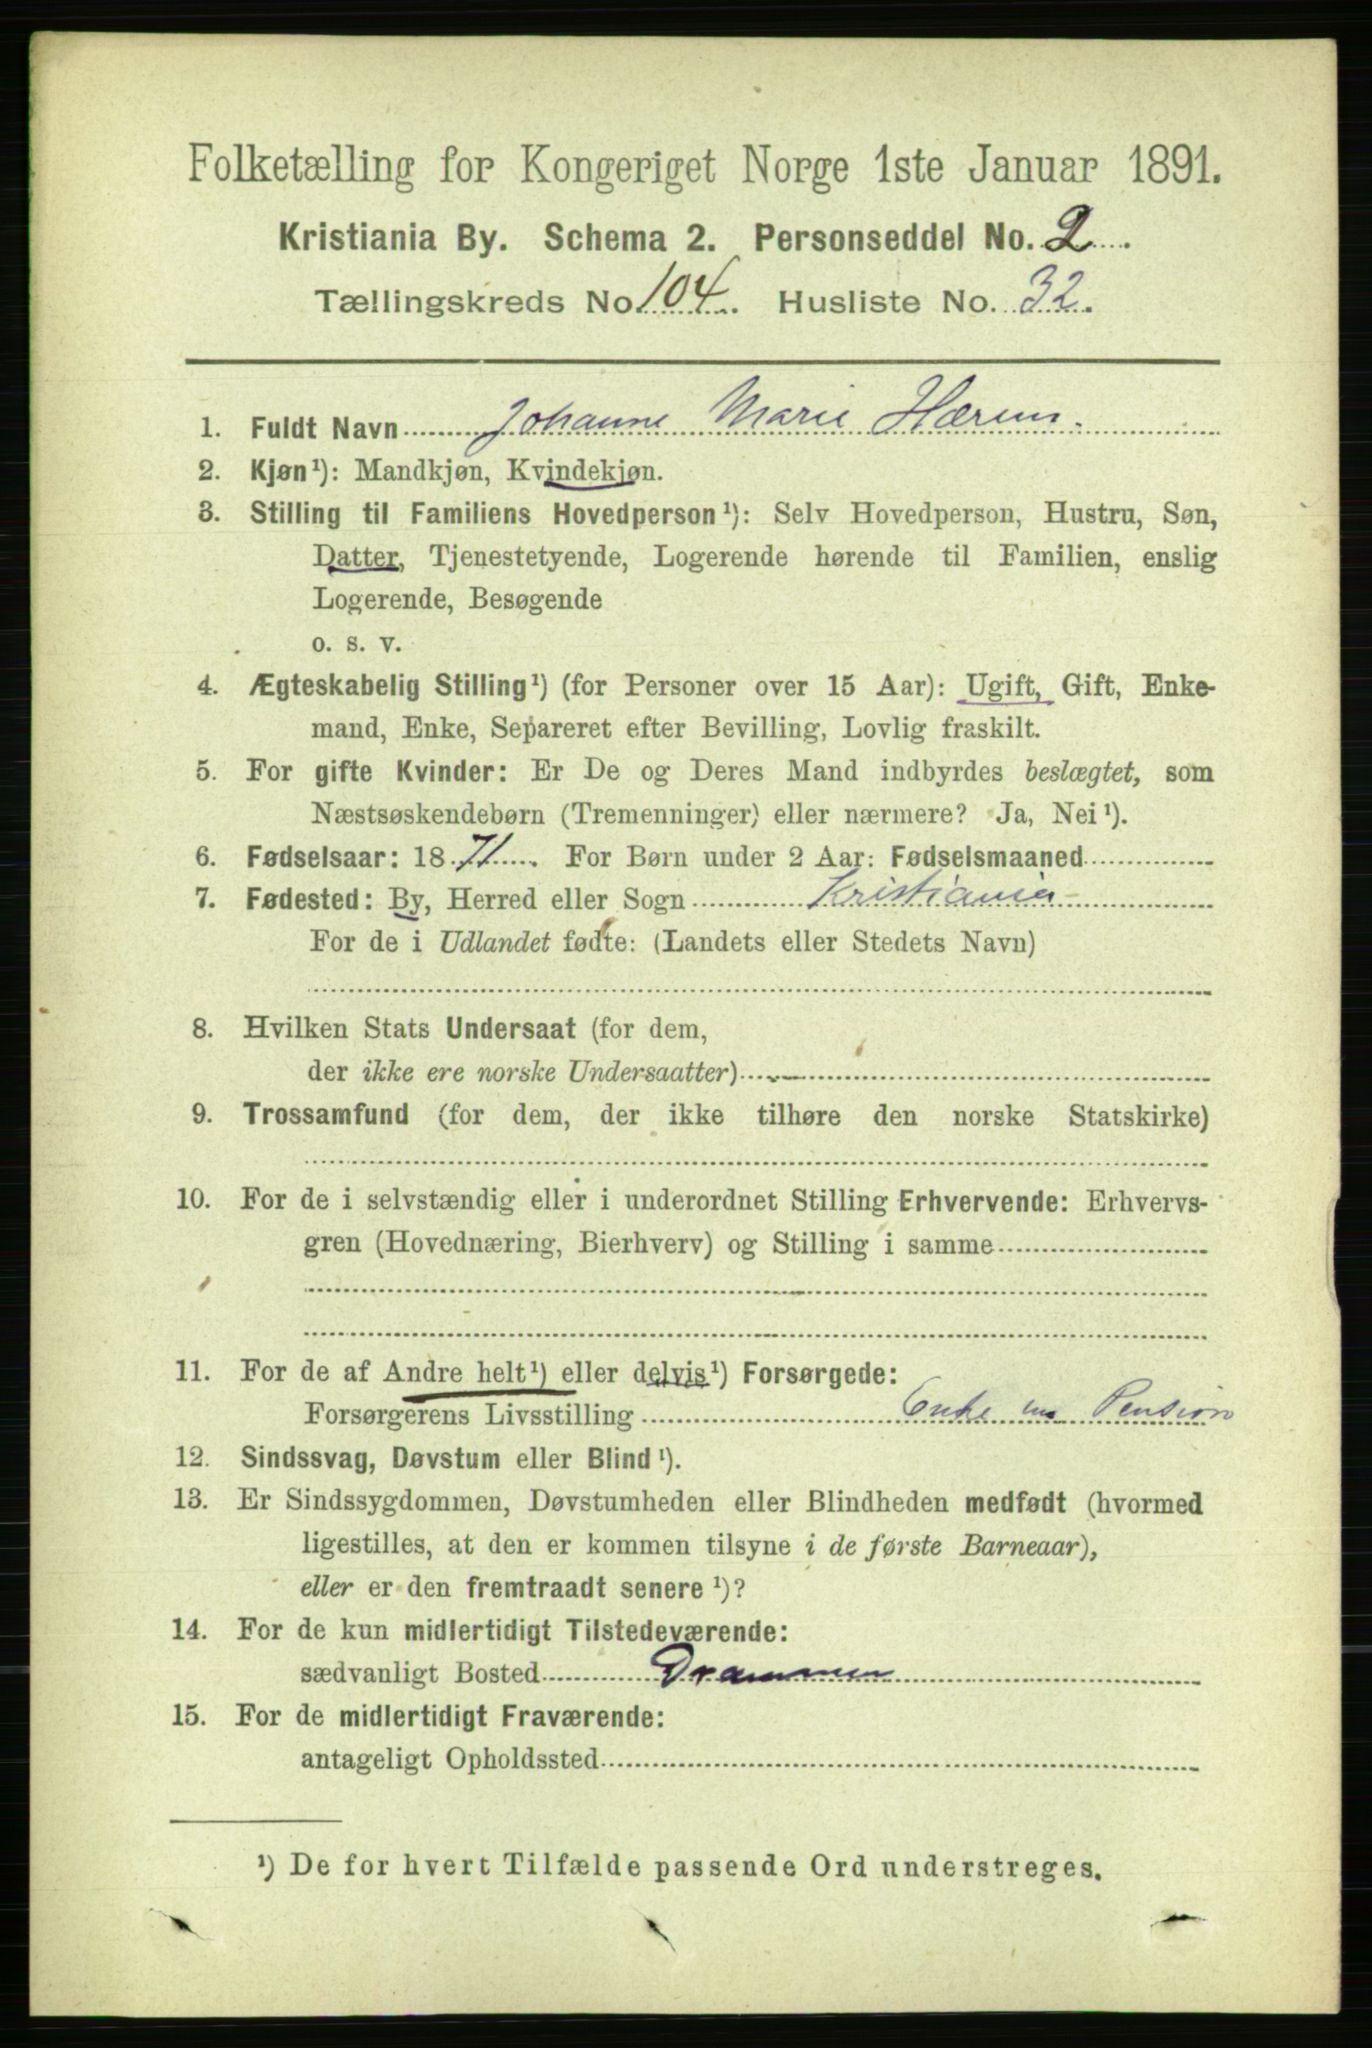 Folketælling for Kongeriget Norge 1ste Januar 1891.
Kristiania By. Schema 2. Personseddel No. 2.
Tællingskreds No. 104. Husliste No. 32.
1. Fuldt Navn Johanne Marie Hærem.
2. Kjøn ¹): Mandkjøn, Kvindekjøn.
3. Stilling til Familiens Hovedperson ¹): Selv Hovedperson, Hustru, Søn,
Datter, Tjenestetyende, Logerende hørende til Familien, enslig
Logerende, Besøgende
o. s. v.
4. Ægteskabelig Stilling ¹) (for Personer over 15 Aar): Ugift, Gift, Enke-
mand, Enke, Separeret efter Bevilling, Lovlig fraskilt.
5. For gifte Kvinder: Er De og Deres Mand indbyrdes beslægtet, som
Næstsøskendebørn (Tremenninger) eller nærmere? Ja, Nei ¹).
6. Fødselsaar: 1871. For Børn under 2 Aar: Fødselsmaaned
7. Fødested: By, Herred eller Sogn Kristiania
For de i Udlandet fødte: (Landets eller Stedets Navn)
8. Hvilken Stats Undersaat (for dem,
der ikke ere norske Undersaatter)
9. Trossamfund (for dem, der ikke tilhøre den norske Statskirke)
10. For de i selvstændig eller i underordnet Stilling Erhvervende: Erhvervs-
gren (Hovednæring, Bierhverv) og Stilling i samme
11. For de af Andre helt ¹) eller delvis ¹) Forsørgede:
Forsørgerens Livsstilling Enke m Pension
12. Sindssvag, Døvstum eller Blind ¹).
13. Er Sindssygdommen, Døvstumheden eller Blindheden medfødt (hvormed
ligestilles, at den er kommen tilsyne i de første Barneaar),
eller er den fremtraadt senere ¹)?
14. For de kun midlertidigt Tilstedeværende:
sædvanligt Bosted Drammen
15. For de midlertidigt Fraværende:
antageligt Opholdssted
¹) De for hvert Tilfælde passende Ord understreges.